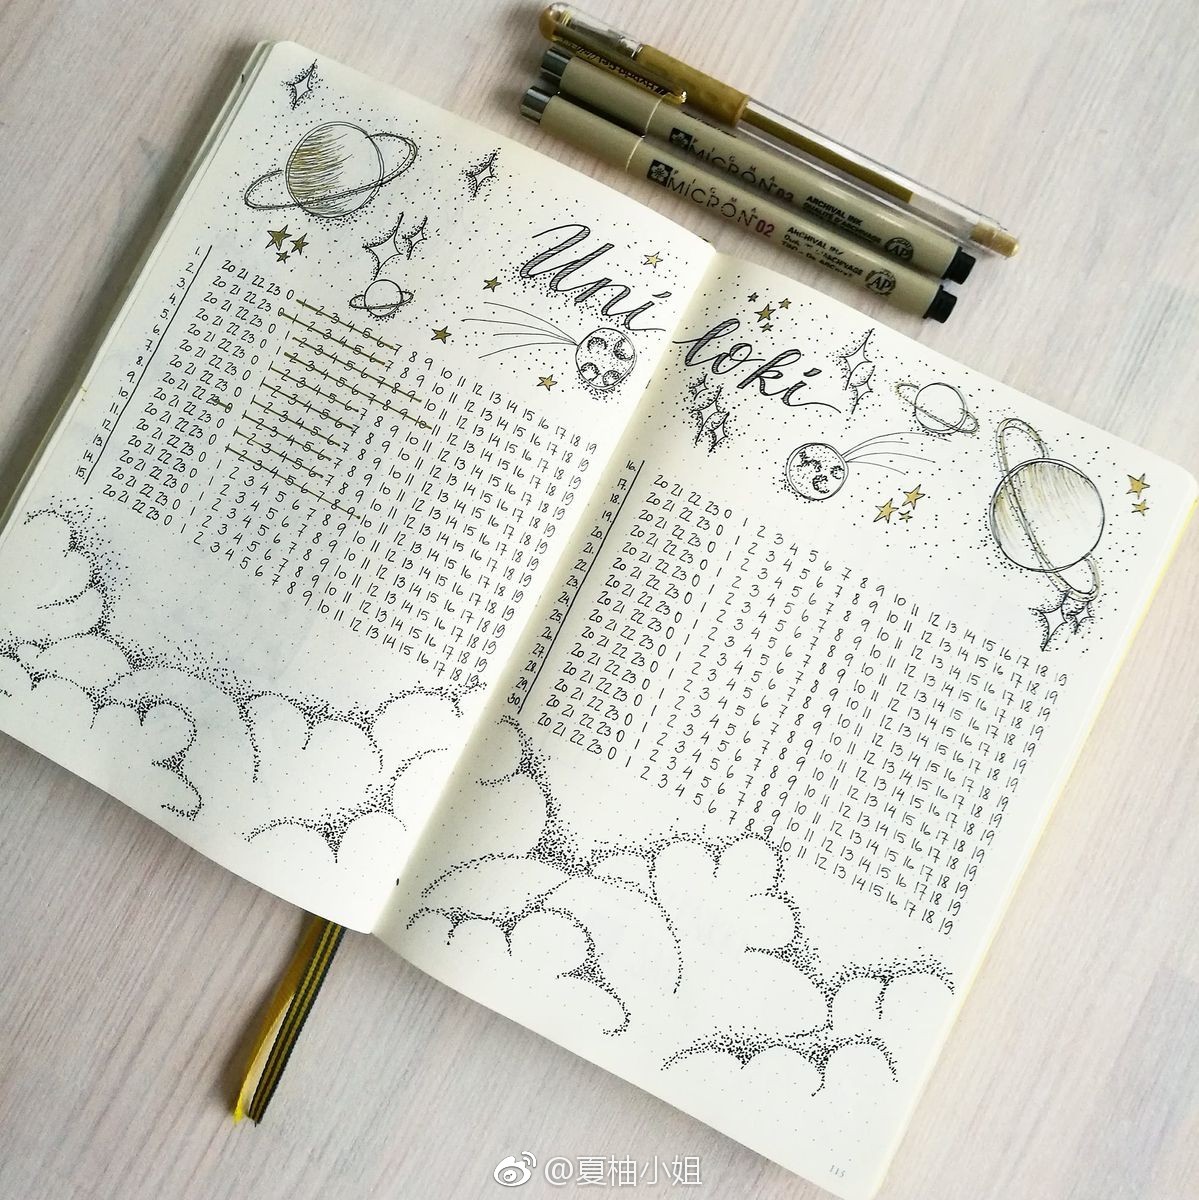 PIGMA
MICRON 03
ARCHIVAL INK
PIGMA
MICRON 02
ARCHIVAL INK
AP
Uni
loki
1. 20 21 22 23 0 1 2 3 4 5 6 7 8 9 10 11 12 13 14 15 16 17 18 19
2. 20 21 22 23 0 1 2 3 4 5 6 7 8 9 10 11 12 13 14 15 16 17 18 19
3. 20 21 22 23 0 1 2 3 4 5 6 7 8 9 10 11 12 13 14 15 16 17 18 19
4. 20 21 22 23 0 1 2 3 4 5 6 7 8 9 10 11 12 13 14 15 16 17 18 19
5. 20 21 22 23 0 1 2 3 4 5 6 7 8 9 10 11 12 13 14 15 16 17 18 19
6. 20 21 22 23 0 1 2 3 4 5 6 7 8 9 10 11 12 13 14 15 16 17 18 19
7. 20 21 22 23 0 1 2 3 4 5 6 7 8 9 10 11 12 13 14 15 16 17 18 19
8. 20 21 22 23 0 1 2 3 4 5 6 7 8 9 10 11 12 13 14 15 16 17 18 19
9. 20 21 22 23 0 1 2 3 4 5 6 7 8 9 10 11 12 13 14 15 16 17 18 19
10. 20 21 22 23 0 1 2 3 4 5 6 7 8 9 10 11 12 13 14 15 16 17 18 19
11. 20 21 22 23 0 1 2 3 4 5 6 7 8 9 10 11 12 13 14 15 16 17 18 19
12. 20 21 22 23 0 1 2 3 4 5 6 7 8 9 10 11 12 13 14 15 16 17 18 19
13. 20 21 22 23 0 1 2 3 4 5 6 7 8 9 10 11 12 13 14 15 16 17 18 19
14. 20 21 22 23 0 1 2 3 4 5 6 7 8 9 10 11 12 13 14 15 16 17 18 19
15. 20 21 22 23 0 1 2 3 4 5 6 7 8 9 10 11 12 13 14 15 16 17 18 19
16. 20 21 22 23 0 1 2 3 4 5 6 7 8 9 10 11 12 13 14 15 16 17 18 19
17. 20 21 22 23 0 1 2 3 4 5 6 7 8 9 10 11 12 13 14 15 16 17 18 19
18. 20 21 22 23 0 1 2 3 4 5 6 7 8 9 10 11 12 13 14 15 16 17 18 19
19. 20 21 22 23 0 1 2 3 4 5 6 7 8 9 10 11 12 13 14 15 16 17 18 19
20. 20 21 22 23 0 1 2 3 4 5 6 7 8 9 10 11 12 13 14 15 16 17 18 19
21. 20 21 22 23 0 1 2 3 4 5 6 7 8 9 10 11 12 13 14 15 16 17 18 19
22. 20 21 22 23 0 1 2 3 4 5 6 7 8 9 10 11 12 13 14 15 16 17 18 19
23. 20 21 22 23 0 1 2 3 4 5 6 7 8 9 10 11 12 13 14 15 16 17 18 19
24. 20 21 22 23 0 1 2 3 4 5 6 7 8 9 10 11 12 13 14 15 16 17 18 19
25. 20 21 22 23 0 1 2 3 4 5 6 7 8 9 10 11 12 13 14 15 16 17 18 19
26. 20 21 22 23 0 1 2 3 4 5 6 7 8 9 10 11 12 13 14 15 16 17 18 19
27. 20 21 22 23 0 1 2 3 4 5 6 7 8 9 10 11 12 13 14 15 16 17 18 19
28. 20 21 22 23 0 1 2 3 4 5 6 7 8 9 10 11 12 13 14 15 16 17 18 19
29. 20 21 22 23 0 1 2 3 4 5 6 7 8 9 10 11 12 13 14 15 16 17 18 19
30. 20 21 22 23 0 1 2 3 4 5 6 7 8 9 10 11 12 13 14 15 16 17 18 19
115
@夏柚小姐